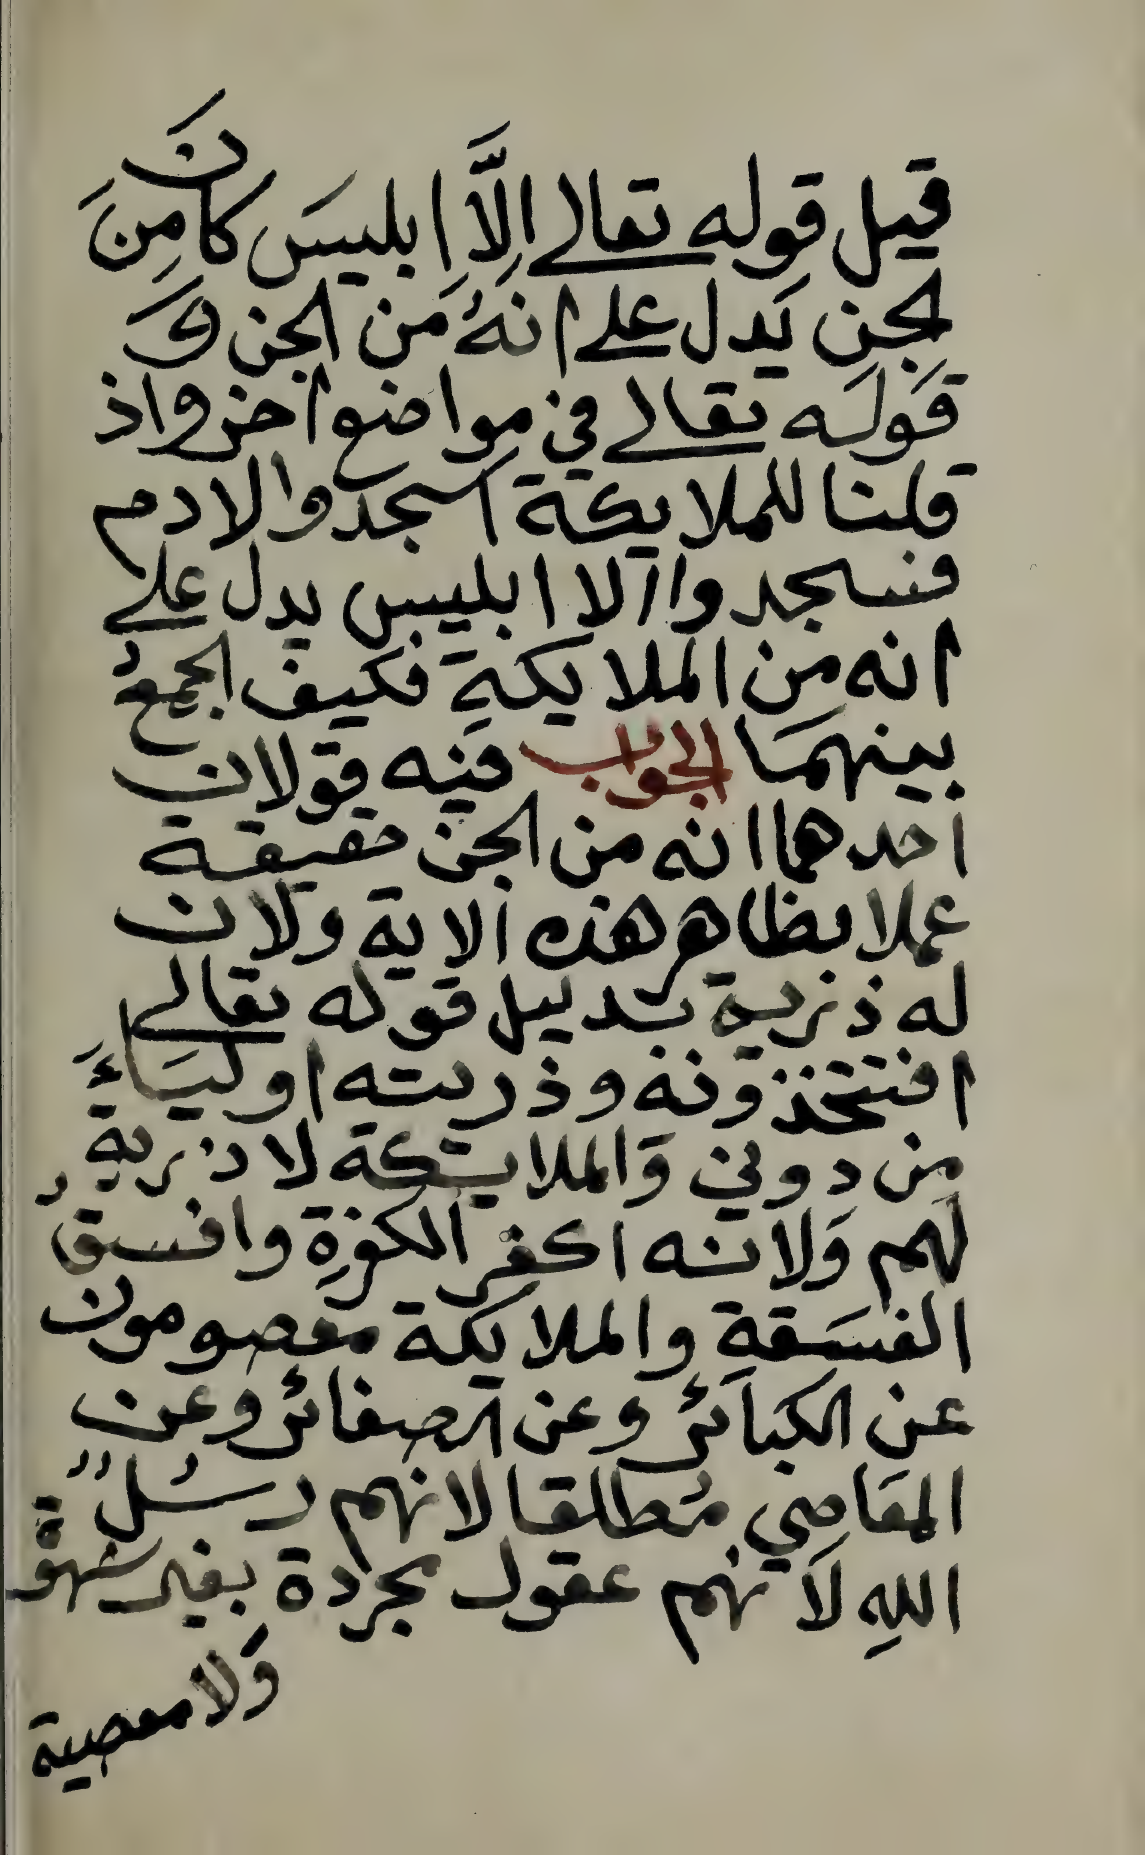 قيل قوله تعالى إِلَّا ابليسَ كانَ مِنَ
لجنِ يَدل على انهُ مَن الجن وَ
قَولَه تعالى في مواضع اخر واذ
قلنا للملايكة اسجدوا لادم
فسجدوا الا ابليس يدل على
انه من الملايكة فكيف الجمعُ
بينهمَا الجواب فيه قولان
احدهما انه من الجن حقيقة
عملا بظاهر هذه الاية ولان
له ذرية بدليل قوله تعالى
افتتخذونه وذريته اوليَاءَ
من دوني وَالملايكة لا ذرية
لَهم وَلانه اكفر الكفرةِ وافسقُ
الفسَقة والملايكة معصومون
عن الكبائر وعن الصغائر وعن
المعَاصي مُطلقا لانهم رسُلٌ
اللهِ لَانهم عقول مجردة بغير شهوة
وَلا معصية